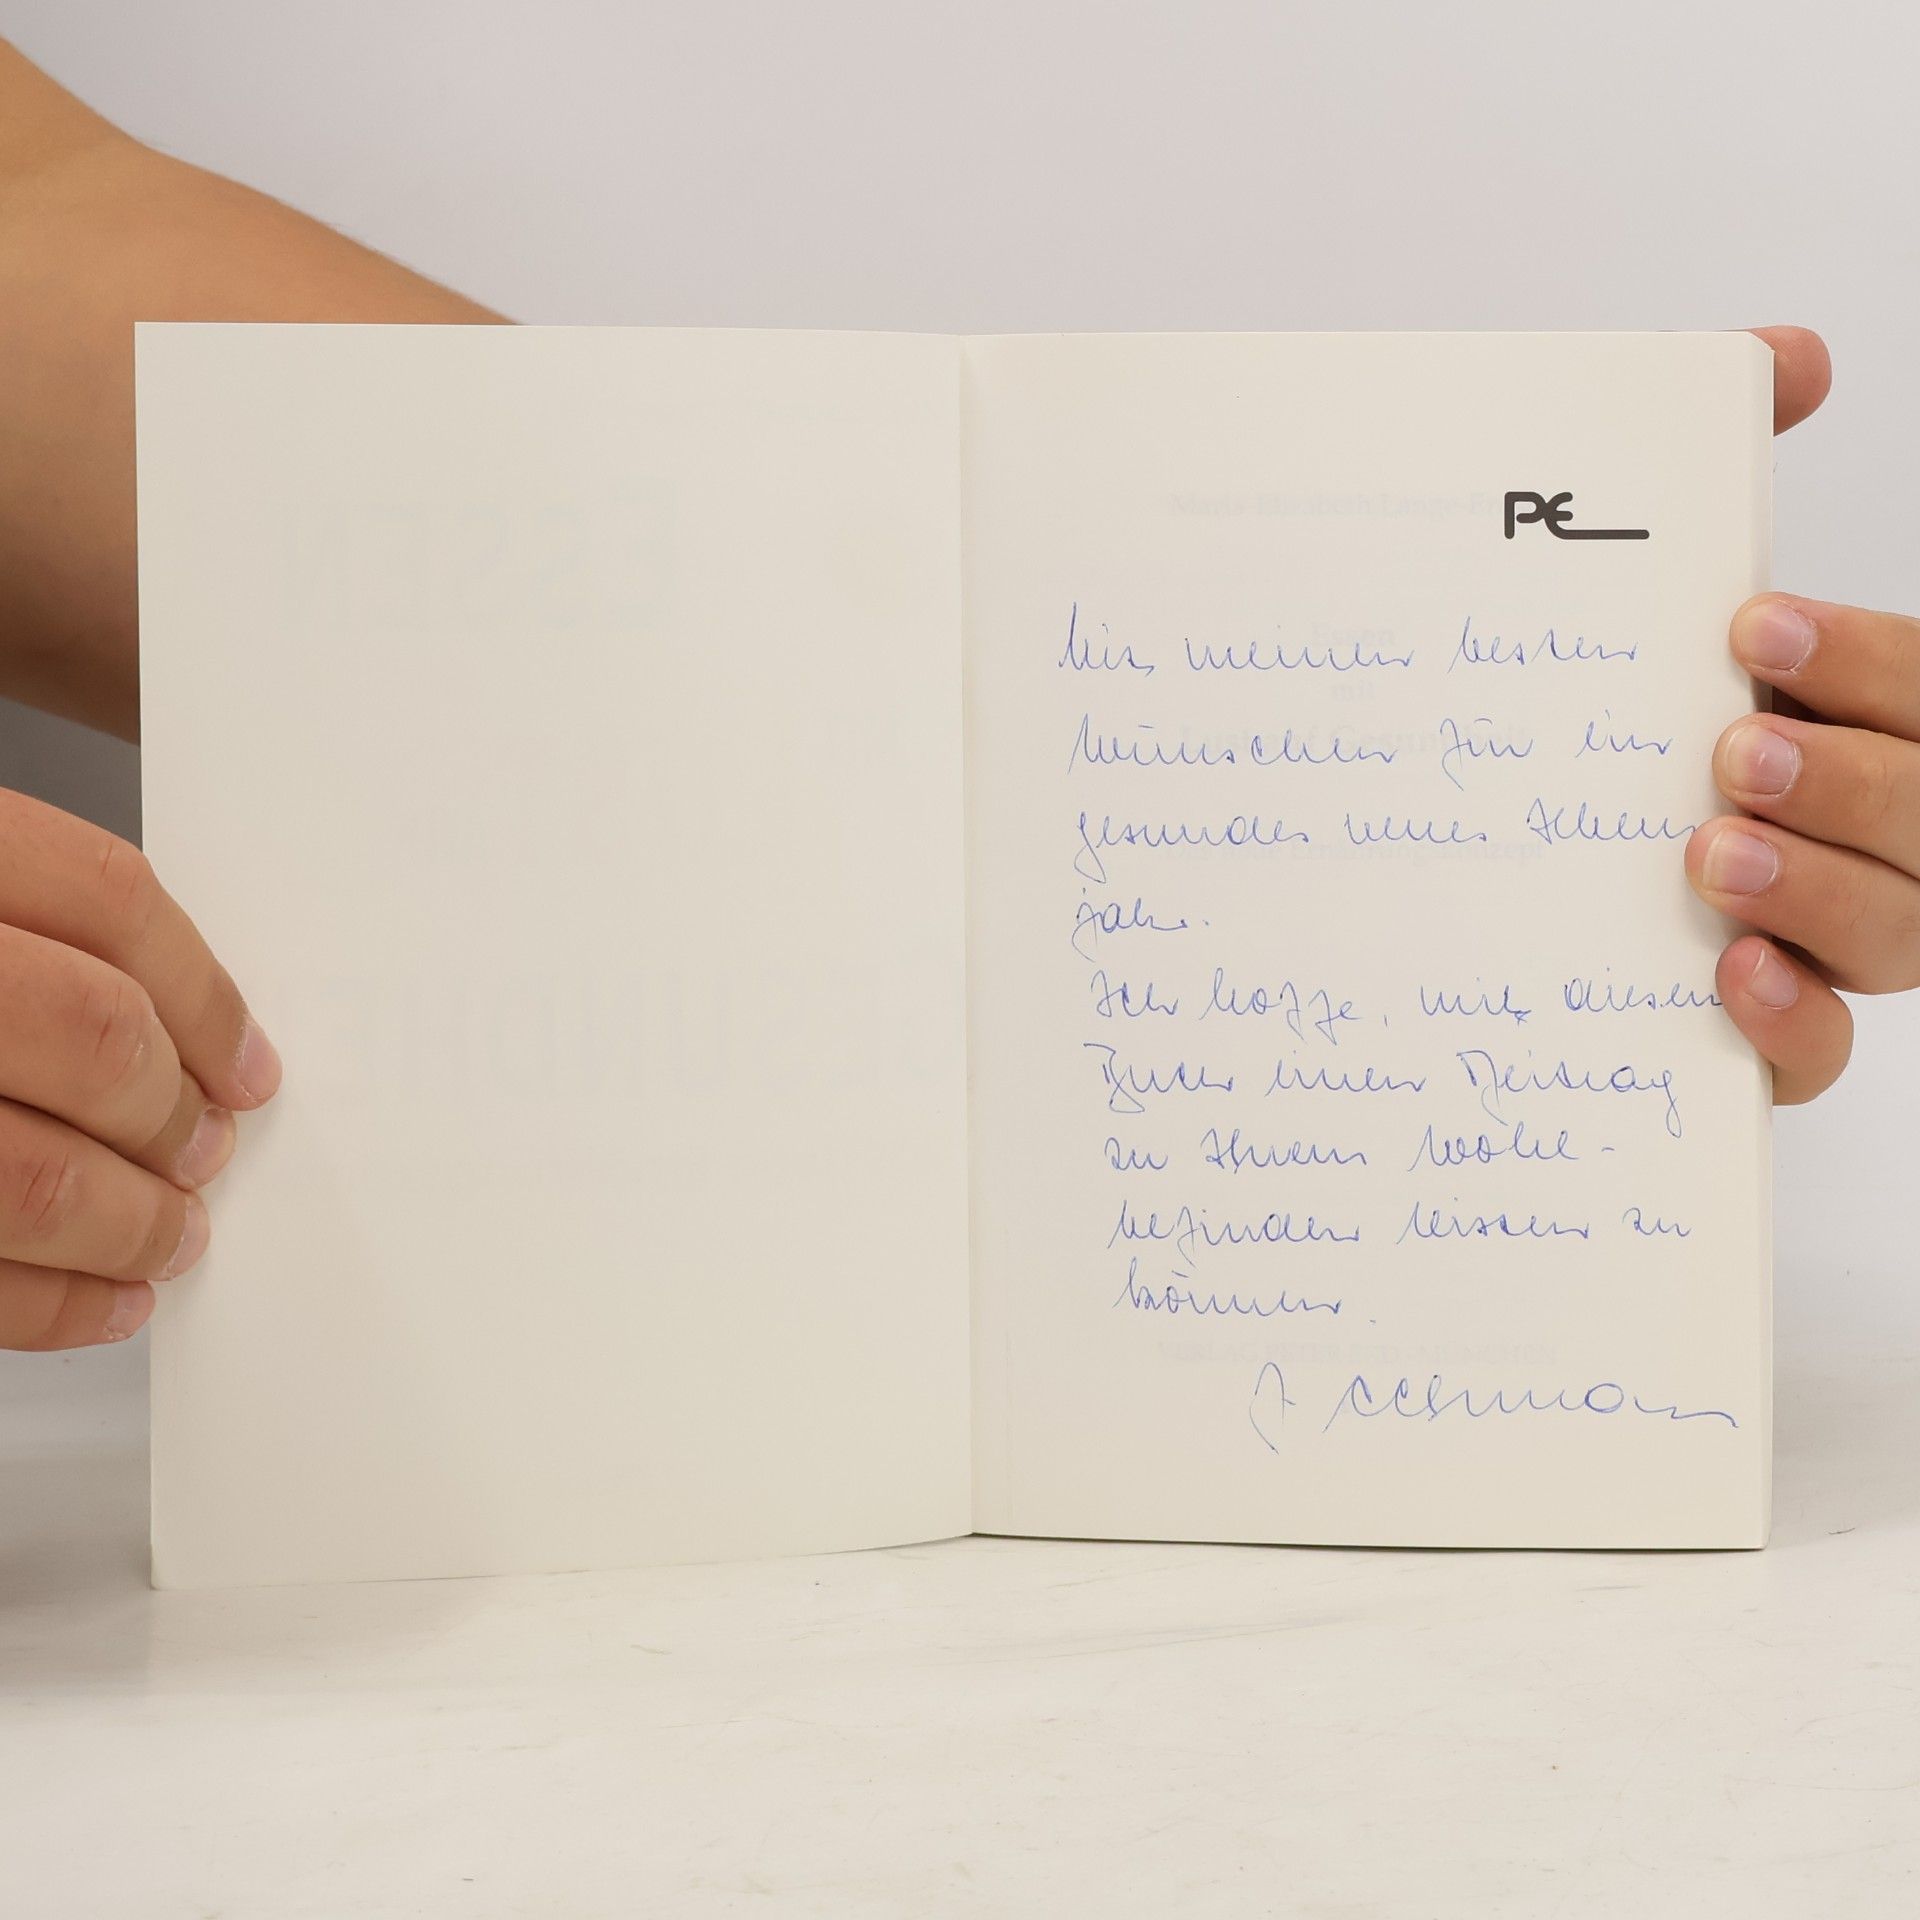 PE
Mit meinen besten
Wünschen für ein
gesundes neues Lebens
jahr.
Ich hoffe, mit diesem
Buch einen Beitrag
zu Ihrem Wohl-
befinden leisten zu
können.